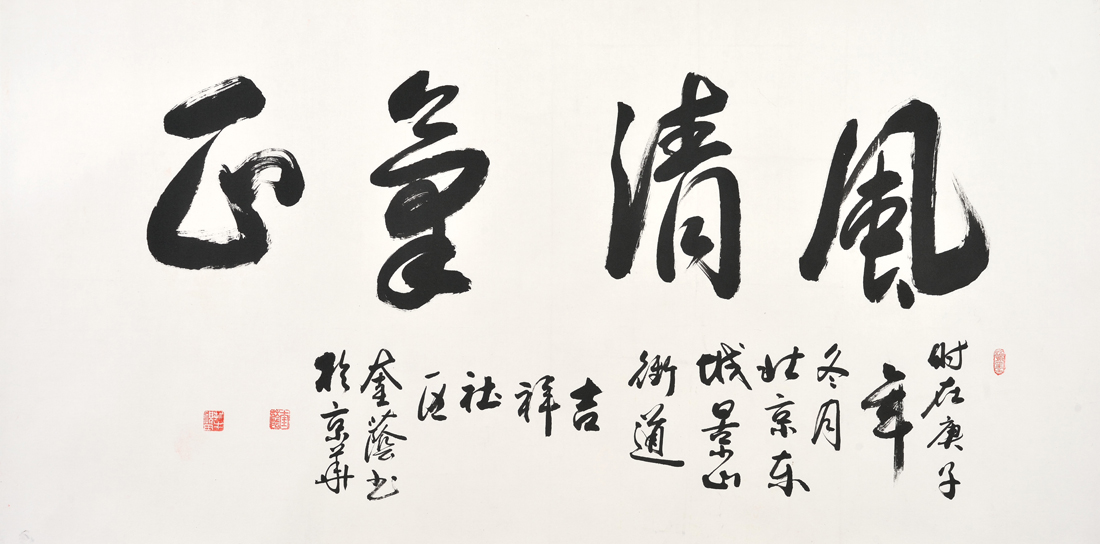 風清氣正
时在庚子
年
冬月
北京东
城景山
街道
吉
祥
社
区
奎蔭书
於京華